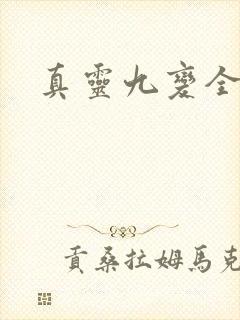 真靈九變全
貢桑拉姆馬克